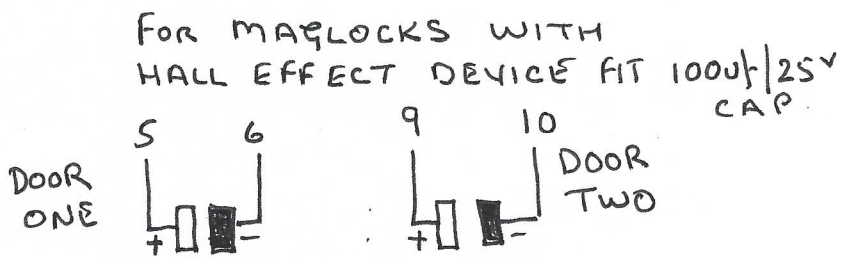 FOR MAGLOCKS WITH
HALL EFFECT DEVICE FIT 100uf/25V
CAP.
5 6
DOOR
ONE
+ -
9 10
DOOR
TWO
+ -